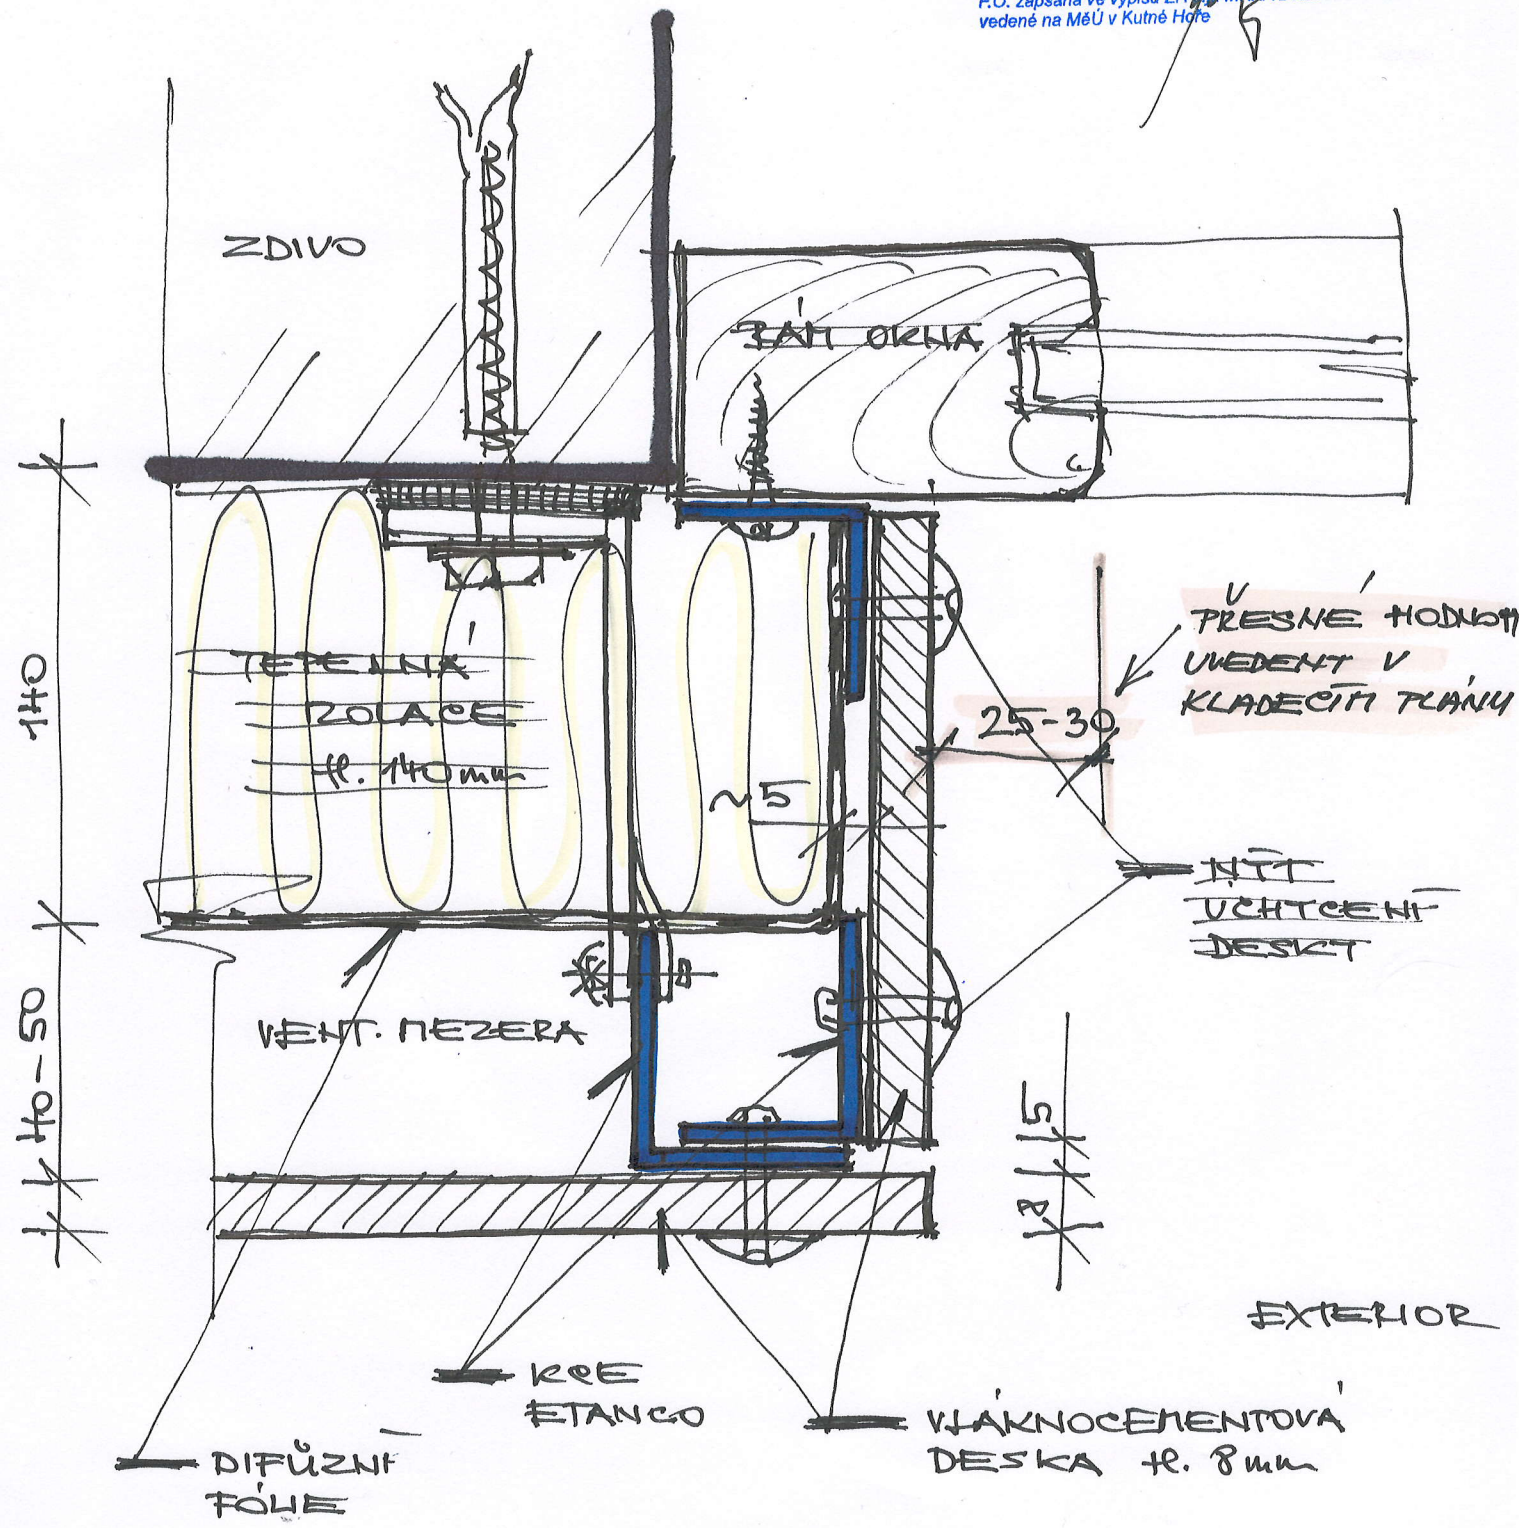 vedené na MěÚ v Kutné Hoře
ZDIVO
RÁM OKNA
140
TEPELNÁ
IZOLACE
tl. 140 mm
~5
PŘESNÉ HODNOTY
UVEDENY V
KLADEČÍM PLÁNU
25-30
NÝT
UCHYCENÍ
DESKY
VENT. MEZERA
40-50
5
8
EXTERIOR
KCE
ETANCO
VLÁKNOCEMENTOVÁ
DESKA tl. 8 mm
DIFŮZNÍ
FÓLIE